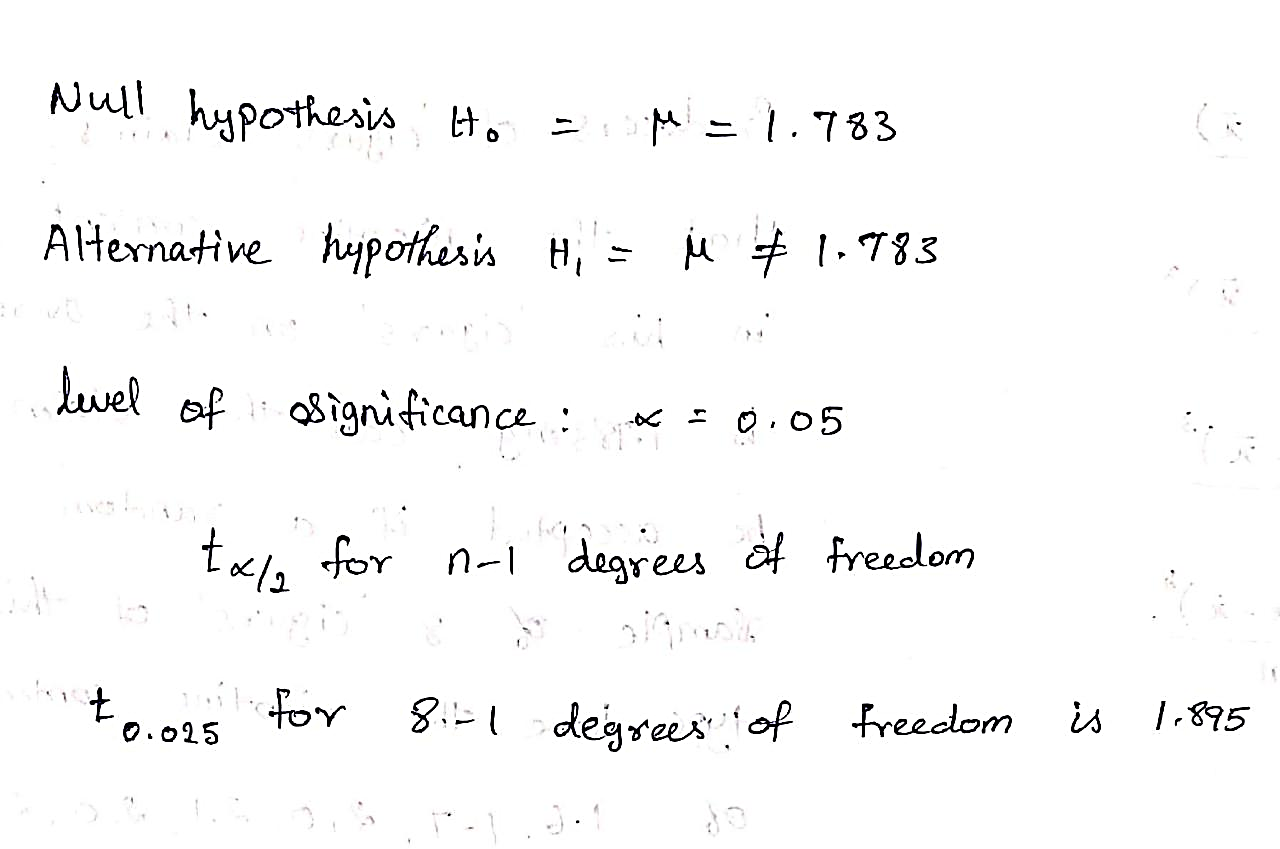 Null hypothesis H₀ = μ = 1.783
Alternative hypothesis H₁ = μ ≠ 1.783
level of significance : α = 0.05
t α/2 for n-1 degrees of freedom
t 0.025 for 8-1 degrees of freedom is 1.895